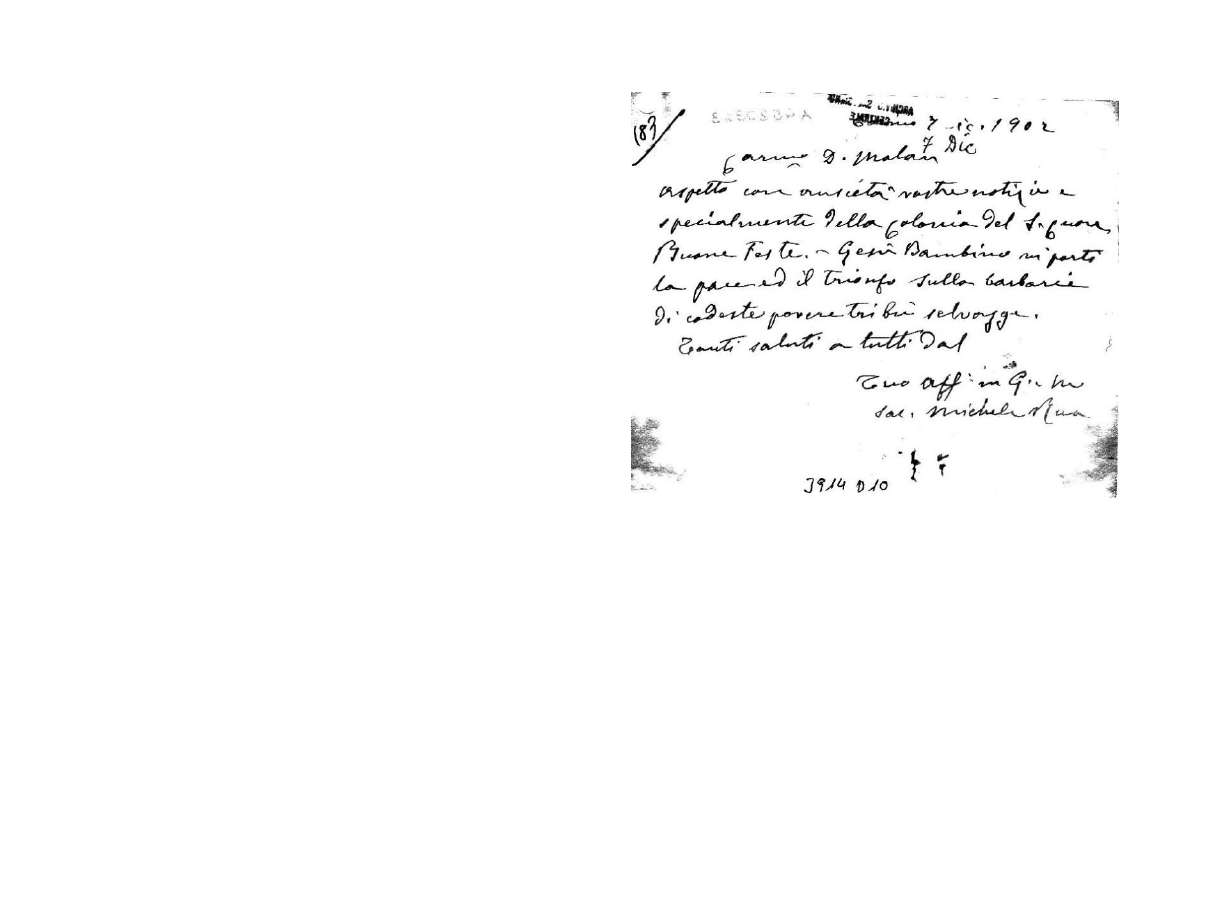 183
7 Dic. 1902
7 Dic
Carmo D. Malan
aspetto con ansietà vostre notizie e
specialmente della Colonia del S. Cuore.
Buone Feste. - Gesù Bambino vi porti
la pace ed il trionfo sulla barbarie
di codeste povere tribù selvagge.
Tanti saluti a tutti dal
Tuo aff. in G. e M.
Sac. Michele Rua
3914 D10